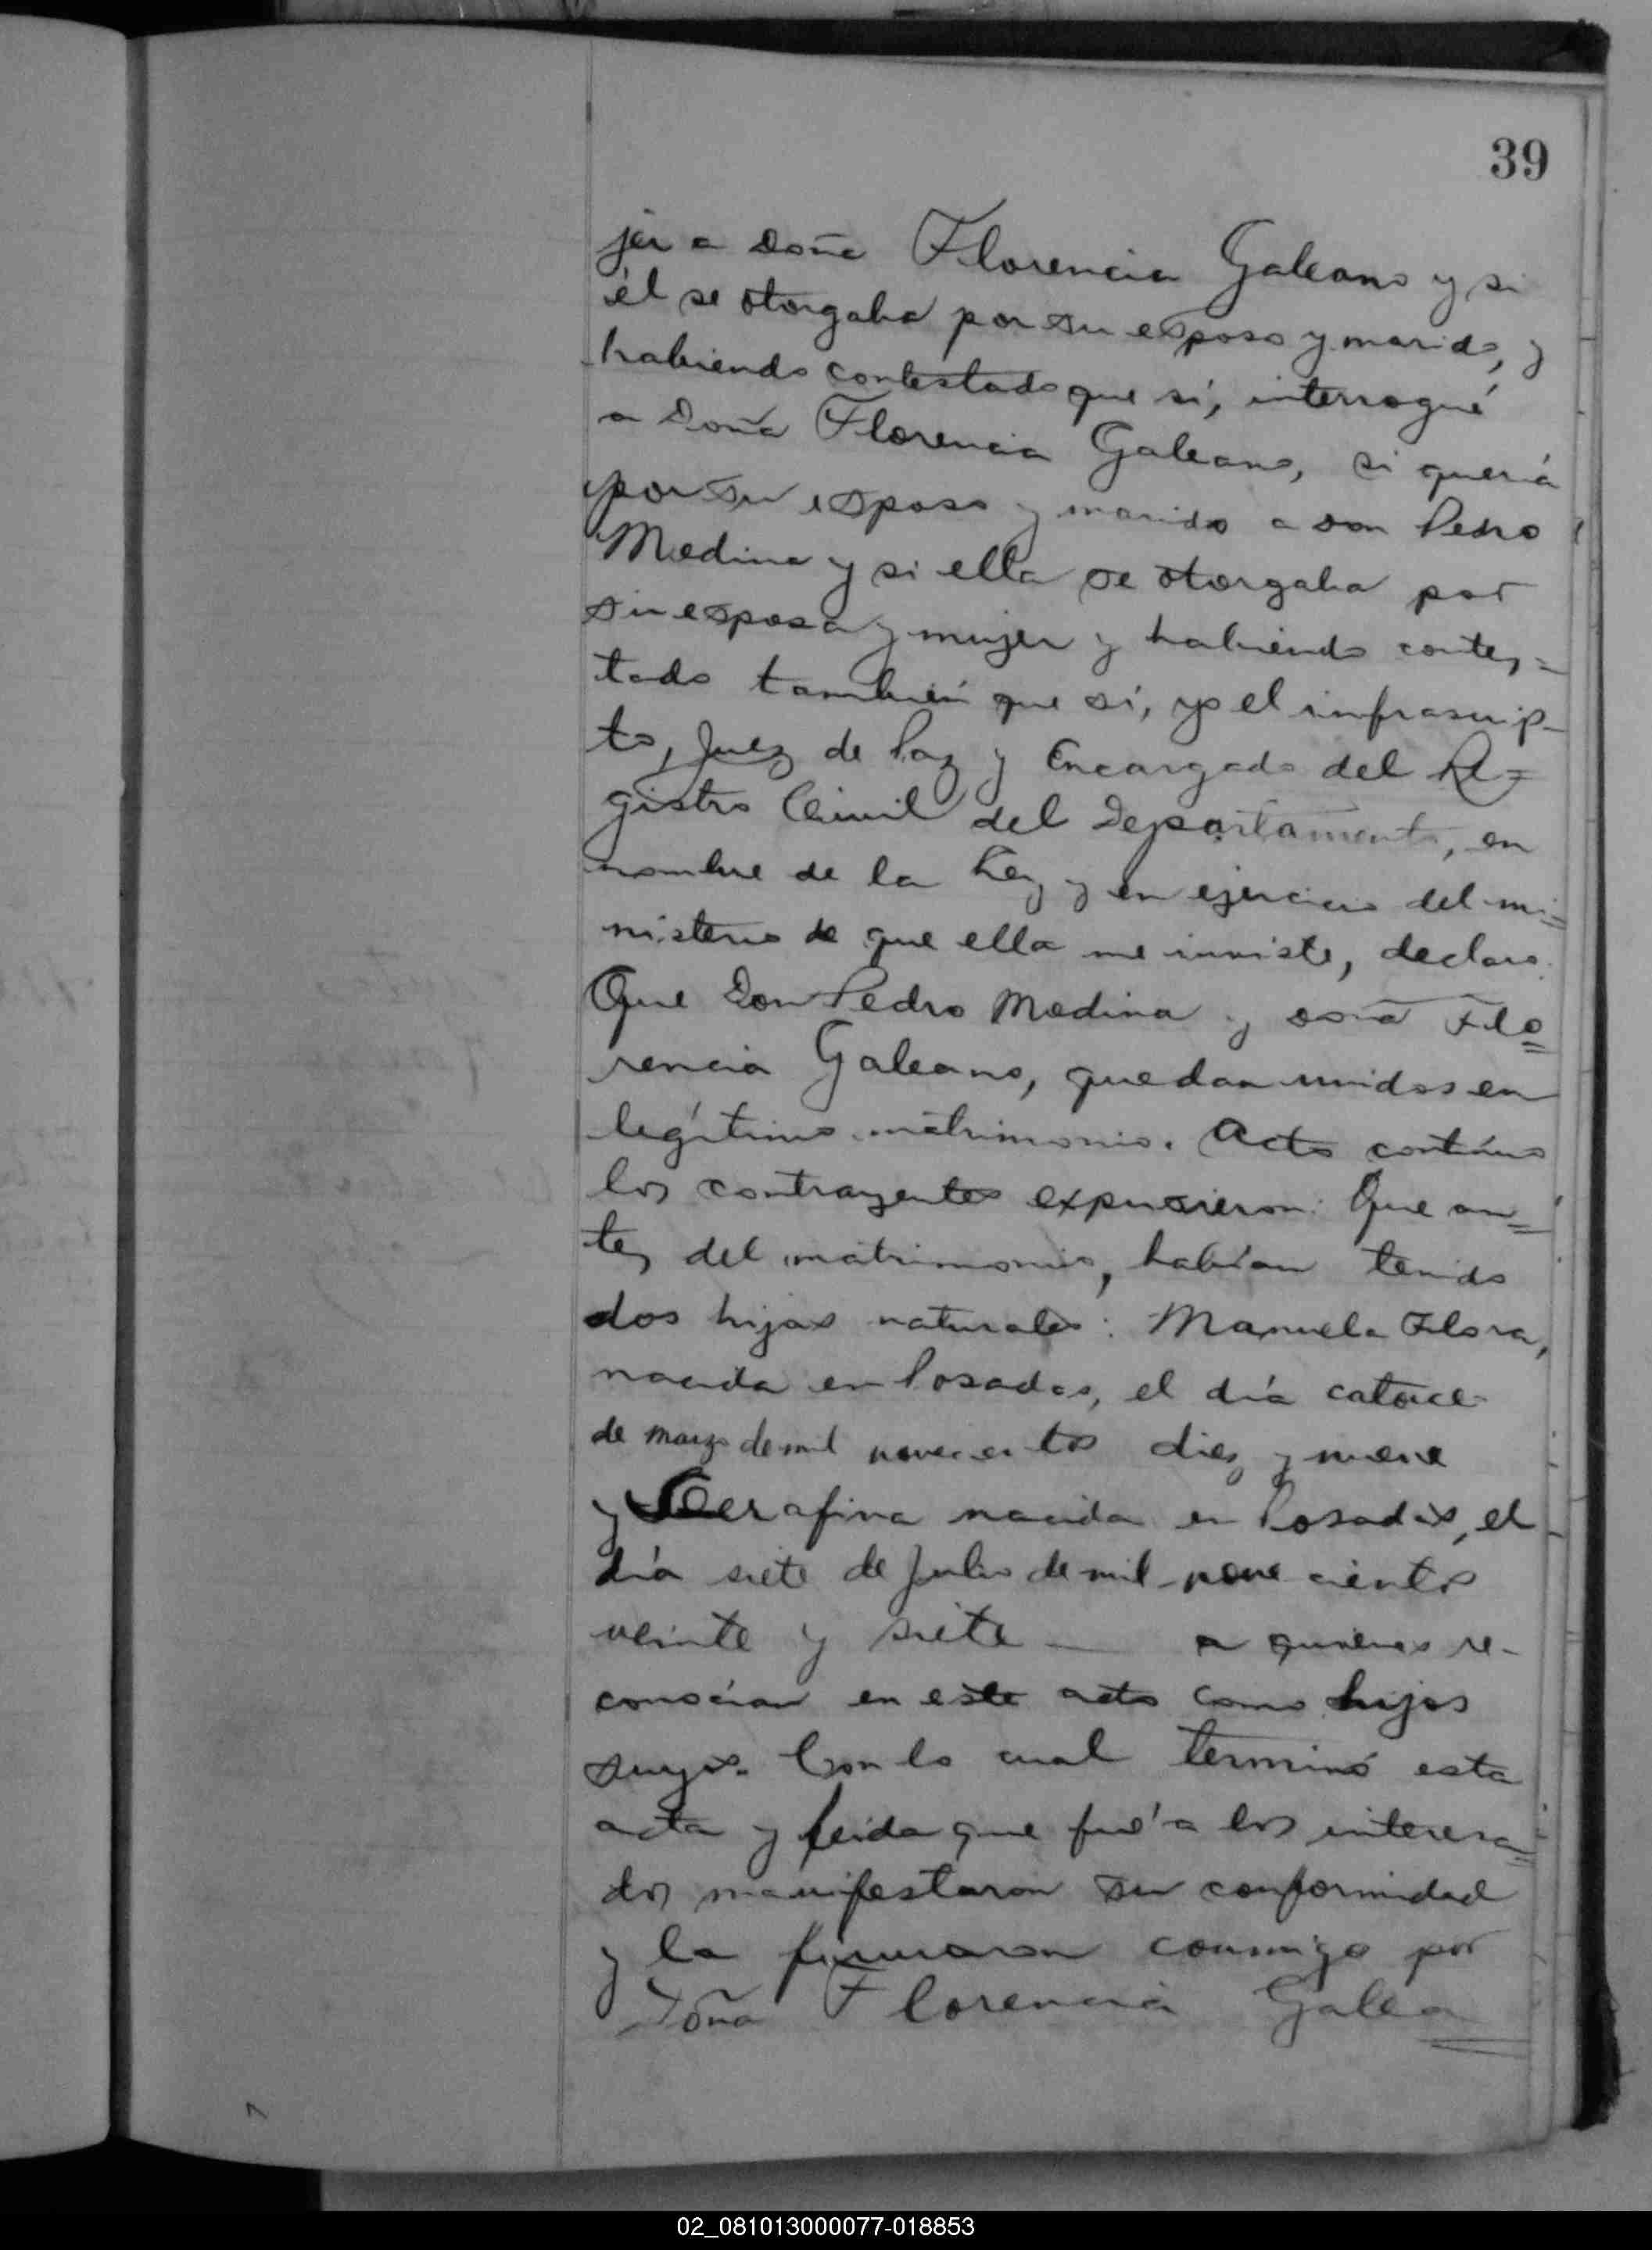 39
jer a doña Florencia Galeano y si
él se otorgaba por su esposo y marido, y
habiendo contestado que sí, interrogué
a Doña Florencia Galeano, si quería
por su esposo y marido a don Pedro
Medina y si ella se otorgaba por
su esposa y mujer y habiendo contes=
tado también que sí, yo el infrascrip-
to, Juez de Paz y Encargado del Re=
gistro Civil del Departamento, en
nombre de la Ley y en ejercicio del mi=
nisterio de que ella me inviste, declaro:
Que Don Pedro Medina y doña Flo=
rencia Galeano, quedan unidos en
legítimo matrimonio. Acto contínuo
los contrayentes expusieron: Que an=
tes del matrimonio, habían tenido
dos hijas naturales: Manuela Flora,
nacida en Posadas, el día catorce
de marzo de mil novecientos diez y nueve
y Serafina nacida en Posadas, el
día siete de Julio de mil novecientos
veinte y siete — a quienes re-
conocían en este acto como hijos
suyos. Con lo cual terminó esta
acta y leida que fué a los interesa=
dos manifestaron su conformidad
y la firmaron conmigo por
Doña Florencia Galea=
02_081013000077-018853